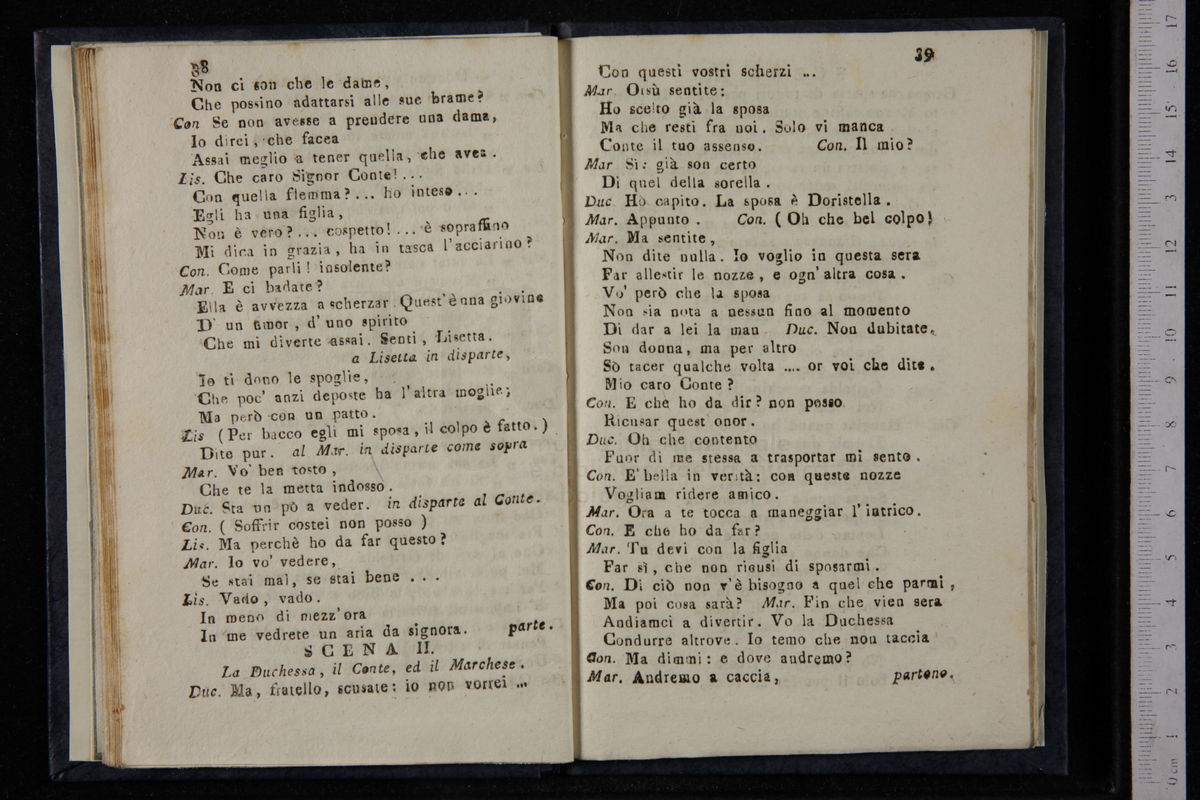 38
Non ci son che le dame,
Che possino adattarsi alle sue brame?
Con Se non avesse a prendere una dama,
Io direi, che facea
Assai meglio a tener quella, che avea.
Lis. Che caro Signor Conte! ...
Con quella flemma? ... ho inteso ...
Egli ha una figlia,
Non è vero? ... cospetto! ... è sopraffino
Mi dica in grazia, ha in tasca l'acciarino?
Con. Come parli! insolente?
Mar. E ci badate?
Ella è avvezza a scherzar. Quest'è una giovine
D' un umor, d'uno spirito
Che mi diverte assai. Senti, Lisetta.
a Lisetta in disparte,
Io ti dono le spoglie,
Che poc' anzi deposte ha l'altra moglie;
Ma però con un patto.
Lis (Per bacco egli mi sposa, il colpo è fatto.)
Dite pur. al Mar. in disparte come sopra
Mar. Vo' ben tosto,
Che te la metta indosso.
Duc. Sta un pò a veder. in disparte al Conte.
Con. ( Soffrir costei non posso )
Lis. Ma perchè ho da far questo?
Mar. Io vo' vedere,
Se stai mal, se stai bene ...
Lis. Vado, vado.
In meno di mezz'ora
In me vedrete un aria da signora. parte.
SCENA II.
La Duchessa, il Conte, ed il Marchese.
Duc. Ma, fratello, scusate: io non vorrei ...
39
Con questi vostri scherzi ...
Mar Orsù sentite:
Ho scelto già la sposa
Ma che resti fra noi. Solo vi manca
Conte il tuo assenso. Con. Il mio?
Mar Sì: già son certo
Di quel della sorella.
Duc Hò capito. La sposa è Doristella.
Mar. Appunto. Con. ( Oh che bel colpo!
Mar. Ma sentite,
Non dite nulla. Io voglio in questa sera
Far allestir le nozze, e ogn' altra cosa.
Vo' però che la sposa
Non sia nota a nessun fino al momento
Di dar a lei la man Duc. Non dubitate.
Son donna, ma per altro
Sò tacer qualche volta .... or voi che dite.
Mio caro Conte?
Con. E che ho da dir? non posso
Ricusar quest' onor.
Duc. Oh che contento
Fuor di me stessa a trasportar mi sento.
Con. E' bella in verità: con queste nozze
Vogliam ridere amico.
Mar. Ora a te tocca a maneggiar l'intrico.
Con. E che ho da far?
Mar. Tu devi con la figlia
Far sì, che non ricusi di sposarmi.
Con. Di ciò non v'è bisogno a quel che parmi,
Ma poi cosa sarà? Mar. Fin che vien sera
Andiamci a divertir. Vo la Duchessa
Condurre altrove. Io temo che non taccia
Con. Ma dimmi: e dove andremo?
Mar. Andremo a caccia, partono.
0 cm 1 2 3 4 5 6 7 8 9 10 11 12 13 14 15 16 17